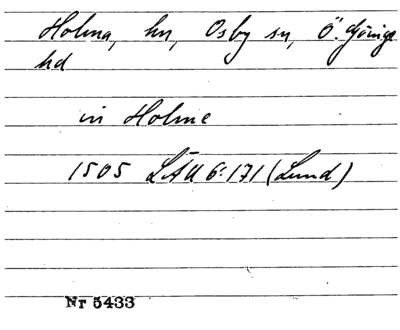 Holma, hn, Osby sn, Ö. Göinge
hd
in Holme
1505 LÄU 6:171 (Lund)
Nr 5433